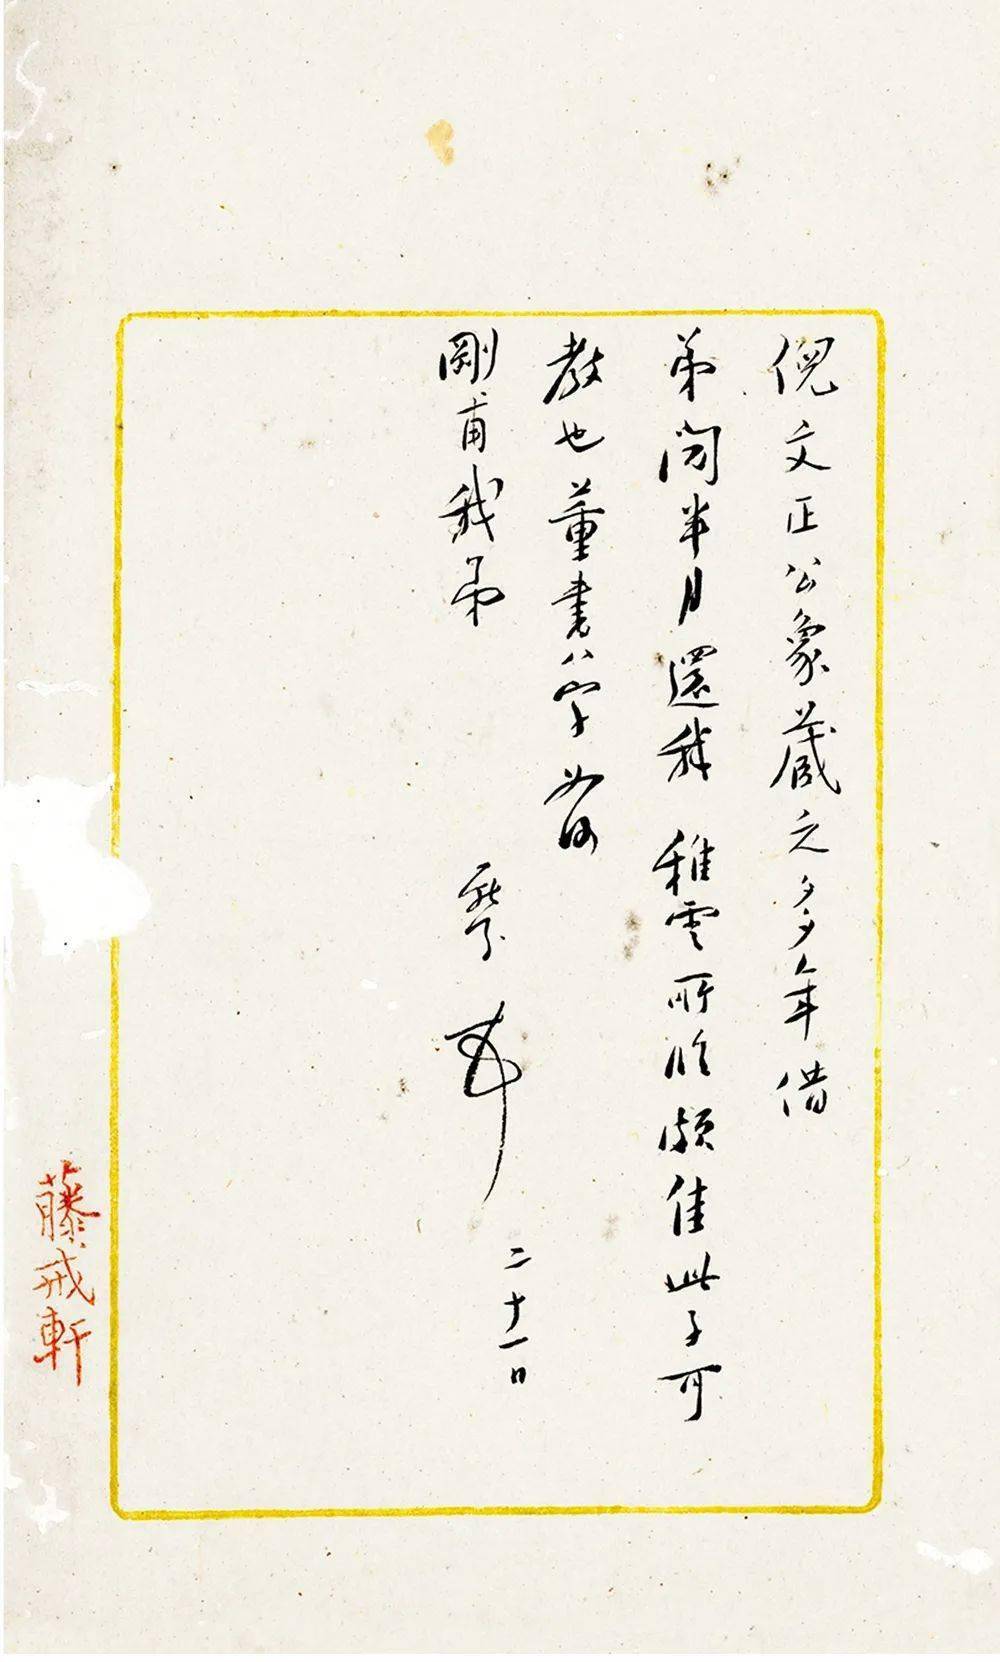 倪文正公象藏之多年借
弟閱半月還我 稚雲所臨頗佳此子可
教也董書八字如何
剛甫我弟
期 二十一日
藤戒軒